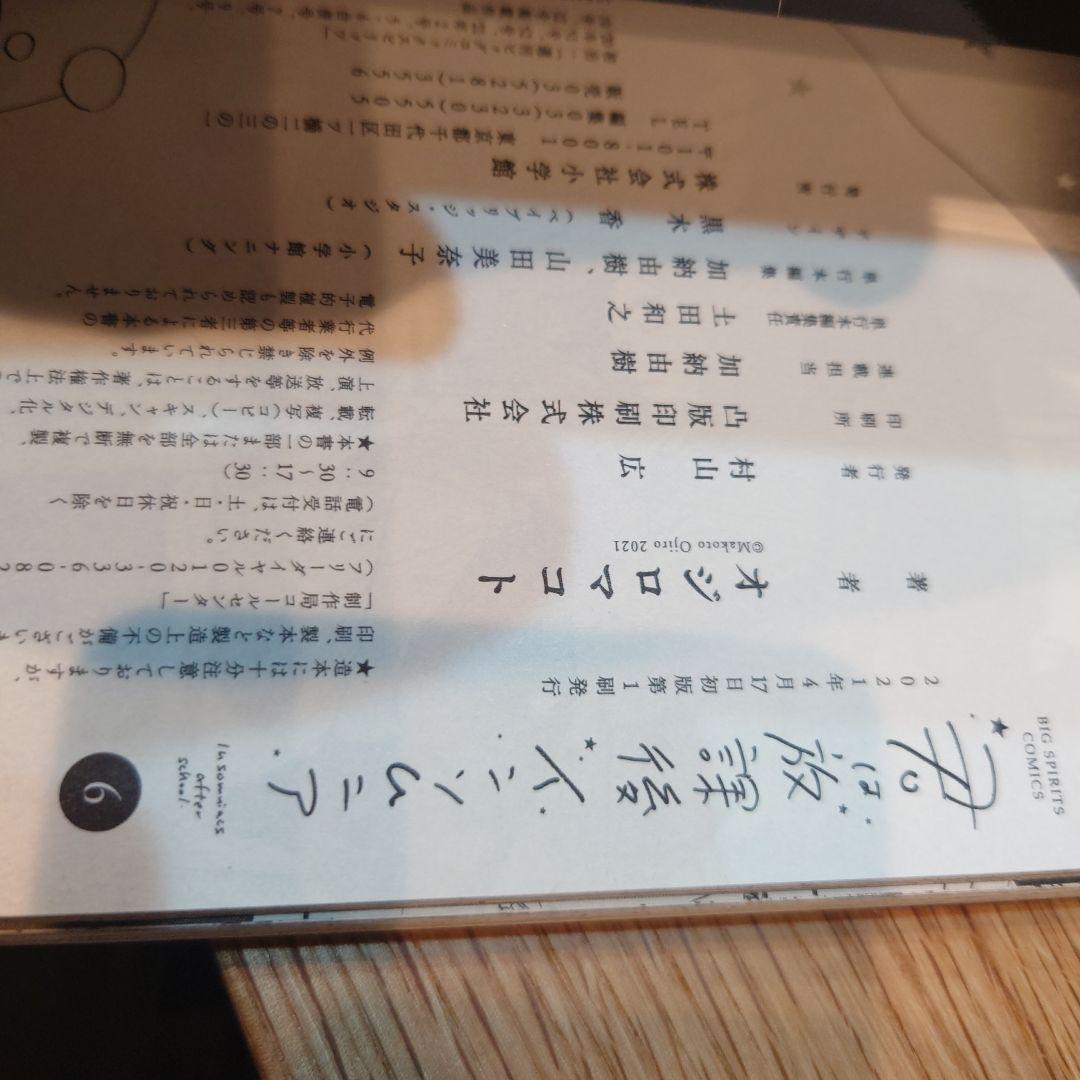 BIG SPIRITS
COMICS
君は放課後インソムニア
Insomniacs
after
school
6
2021年4月17日初版第1刷発行
著者 オジロマコト
©Makoto Ojiro 2021
発行者 村山 広
印刷所 凸版印刷株式会社
連載担当 加納由樹
単行本編集責任 土田和之
単行本編集 加納由樹、山田美奈子
(小学館ナニング)
デザイン 黒木 香
(ベイブリッジ・スタジオ)
発行所 株式会社小学館
〒101-8001 東京都千代田区一ツ橋二の三の一
TEL 編集03(3230)5505
販売03(5281)3556
★造本には十分注意しておりますが、
印刷、製本など製造上の不備がございま
「制作局コールセンター」
(フリーダイヤル0120-336-082
にご連絡ください。
(電話受付は、土・日・祝休日を除く
9:30~17:30)
★本書の一部または全部を無断で複製、
転載、複写(コピー)、スキャン、デジタル化、
上演、放送等をすることは、著作権法上で
例外を除き禁じられています。
代行業者等の第三者による本書の
電子的複製も認められておりません。